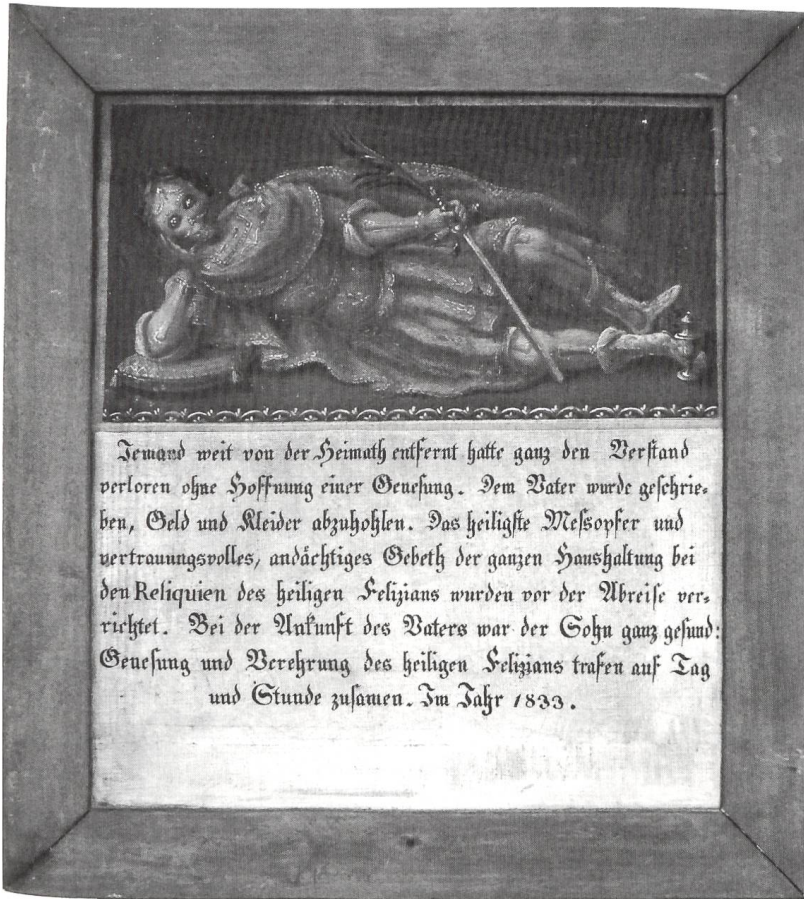 Jemand weit von der Heimath entfernt hatte ganz den Verstand
verloren ohne Hoffnung einer Genesung. Dem Vater wurde geschrie-
ben, Geld und Kleider abzuhohlen. Das heiligste Messopfer und
vertrauungsvolles, andächtiges Gebeth der ganzen Haushaltung bei
den Reliquien des heiligen Felizians wurden vor der Abreise ver-
richtet. Bei der Ankunft des Vaters war der Sohn ganz gesund:
Genesung und Verehrung des heiligen Felizians trafen auf Tag
und Stunde zusamen. Im Jahr 1833.